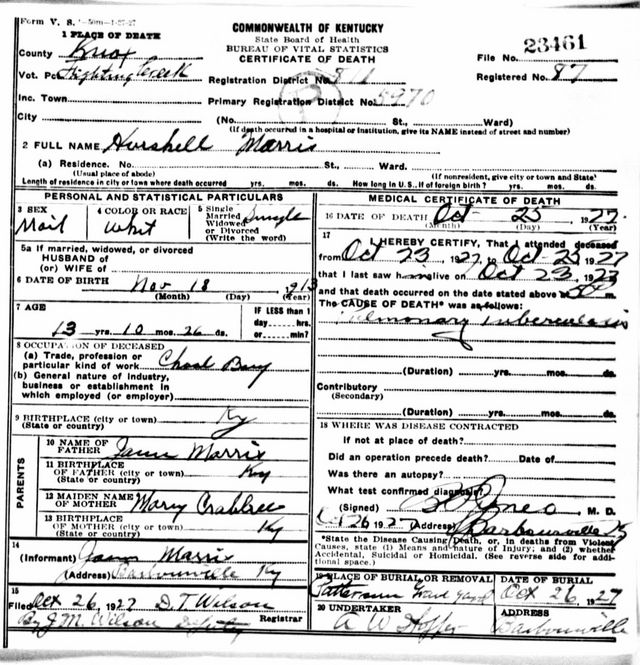 Form V. S. -50m-1-27-27
COMMONWEALTH OF KENTUCKY
State Board of Health
BUREAU OF VITAL STATISTICS
CERTIFICATE OF DEATH
1 PLACE OF DEATH
County Knox
File No. 23461
Vot. Pc Fighting Creek
Registration District No.
Registered No. 87
Inc. Town
Primary Registration District No. 5970
City (No. St., Ward)
(If death occurred in a hospital or institution, give its NAME instead of street and number)
2 FULL NAME Hurshell Marris
(a) Residence. No. St., Ward.
(Usual place of abode) (If nonresident, give city or town and State)
Length of residence in city or town where death occurred yrs. mos. ds. How long in U.S., If of foreign birth? yrs. mos. ds.
PERSONAL AND STATISTICAL PARTICULARS
3 SEX
Mail
4 COLOR OR RACE
Whit
5 Single
Married
Widowed
or Divorced
(Write the word)
Single
5a If married, widowed, or divorced
HUSBAND of
(or) WIFE of
6 DATE OF BIRTH Nov 18 1913
(Month) (Day) (Year)
7 AGE
13 yrs. 10 mos. 26 ds.
IF LESS than 1
day hrs.
or min.?
8 OCCUPATION OF DECEASED
(a) Trade, profession or
particular kind of work
(b) General nature of industry,
business or establishment in
which employed (or employer)
9 BIRTHPLACE (city or town) Ky
(State or country)
PARENTS
10 NAME OF
FATHER Marris
11 BIRTHPLACE
OF FATHER (city or town) Ky
(State or country)
12 MAIDEN NAME
OF MOTHER Mary Crabtree
13 BIRTHPLACE
OF MOTHER (city or town) Ky
(State or country)
14
(Informant) Marris
(Address) Barbourville Ky
15
Filed Oct 26, 1927 D.T. Wilson
By J.M. Wilson Deputy Registrar
MEDICAL CERTIFICATE OF DEATH
16 DATE OF DEATH Oct - 25 1927
(Month) (Day) (Year)
17
I HEREBY CERTIFY, That I attended deceased
from Oct 23, 1927 to Oct-25, 1927
that I last saw him alive on Oct 23, 1927
and that death occurred on the date stated above at m.
The CAUSE OF DEATH* was as follows:
Pulmonary Tuberculosis
(Duration) yrs. mos. ds.
Contributory
(Secondary)
(Duration) yrs. mos. ds.
18 WHERE WAS DISEASE CONTRACTED
If not at place of death?
Did an operation precede death? Date of
Was there an autopsy?
What test confirmed diagnosis?
(Signed) M. D.
26 1927 (Address) Barbourville Ky
*State the Disease Causing Death, or, in deaths from Violent
Causes, state (1) Means and nature of Injury; and (2) whether
Accidental, Suicidal or Homicidal. (See reverse side for addi-
tional space.)
19 PLACE OF BURIAL OR REMOVAL
DATE OF BURIAL
Oct 26, 1927
20 UNDERTAKER
ADDRESS
Barbourville